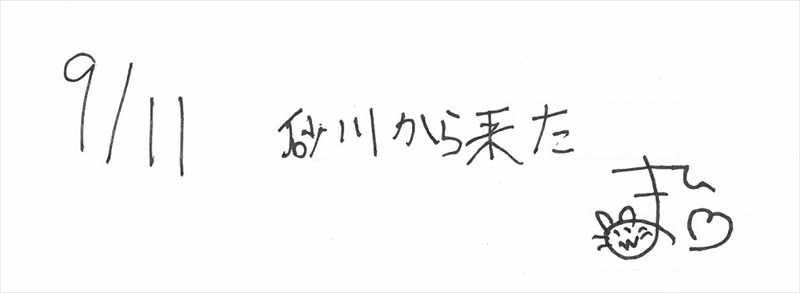 9/11 砂川から来た
ま♡